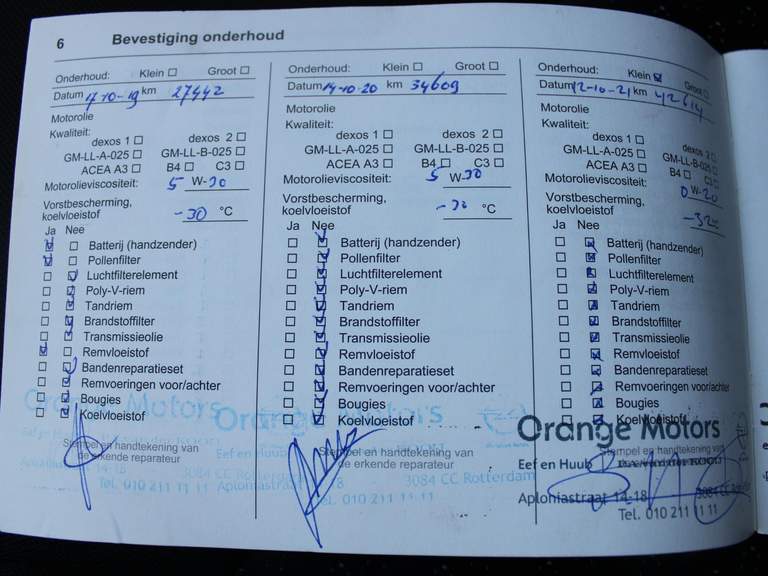 6 Bevestiging onderhoud
Onderhoud: Klein ☐ Groot ☐
Datum 17-10-19 km 27442
Motorolie
Kwaliteit:
dexos 1 ☐ dexos 2 ☐
GM-LL-A-025 ☐ GM-LL-B-025 ☐
ACEA A3 ☐ B4 ☐ C3 ☐
Motorolieviscositeit: 5 W-30
Vorstbescherming,
koelvloeistof -30 °C
Ja Nee
Batterij (handzender)
Pollenfilter
Luchtfilterelement
Poly-V-riem
Tandriem
Brandstoffilter
Transmissieolie
Remvloeistof
Bandenreparatieset
Remvoeringen voor/achter
Bougies
Koelvloeistof
Orange Motors
Stempel en handtekening van
de erkende reparateur
Aploniastraat 14-18
3084 CC Rotterdam
Tel. 010 211 11 11
Onderhoud: Klein ☐ Groot ☐
Datum 14-10-20 km 34609
Motorolie
Kwaliteit:
dexos 1 ☐ dexos 2 ☐
GM-LL-A-025 ☐ GM-LL-B-025 ☐
ACEA A3 ☐ B4 ☐ C3 ☐
Motorolieviscositeit: 5 W-30
Vorstbescherming,
koelvloeistof -30 °C
Ja Nee
Batterij (handzender)
Pollenfilter
Luchtfilterelement
Poly-V-riem
Tandriem
Brandstoffilter
Transmissieolie
Remvloeistof
Bandenreparatieset
Remvoeringen voor/achter
Bougies
Koelvloeistof
Orange Motors
Eef en Huub
Stempel en handtekening van
de erkende reparateur
Aploniastraat 14-18
3084 CC Rotterdam
Tel. 010 211 11 11
Onderhoud: Klein ☑ Groot ☐
Datum 12-10-21 km 42614
Motorolie
Kwaliteit:
dexos 1 ☐ dexos 2 ☐
GM-LL-A-025 ☐ GM-LL-B-025 ☐
ACEA A3 ☐ B4 ☐ C3 ☐
Motorolieviscositeit: 0 W-20
Vorstbescherming,
koelvloeistof -32
Ja Nee
Batterij (handzender)
Pollenfilter
Luchtfilterelement
Poly-V-riem
Tandriem
Brandstoffilter
Transmissieolie
Remvloeistof
Bandenreparatieset
Remvoeringen voor/achter
Bougies
Koelvloeistof
Orange Motors
Stempel en handtekening van
Eef en Huub
Aploniastraat 14-18 3084 CC
Tel. 010 211 11 11